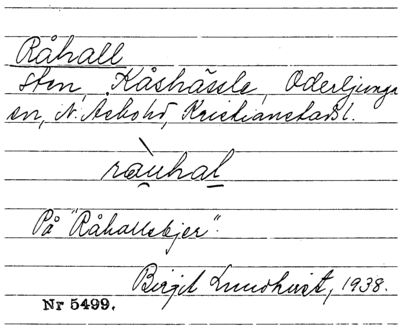 Råhall
sten, Kåshässle, Oderljunga
sn, N. Åsbohd, Kristianstads l.
ràuhal
På "Råhallsbjer".
Birgit Lundkvist, 1938.
Nr 5499.